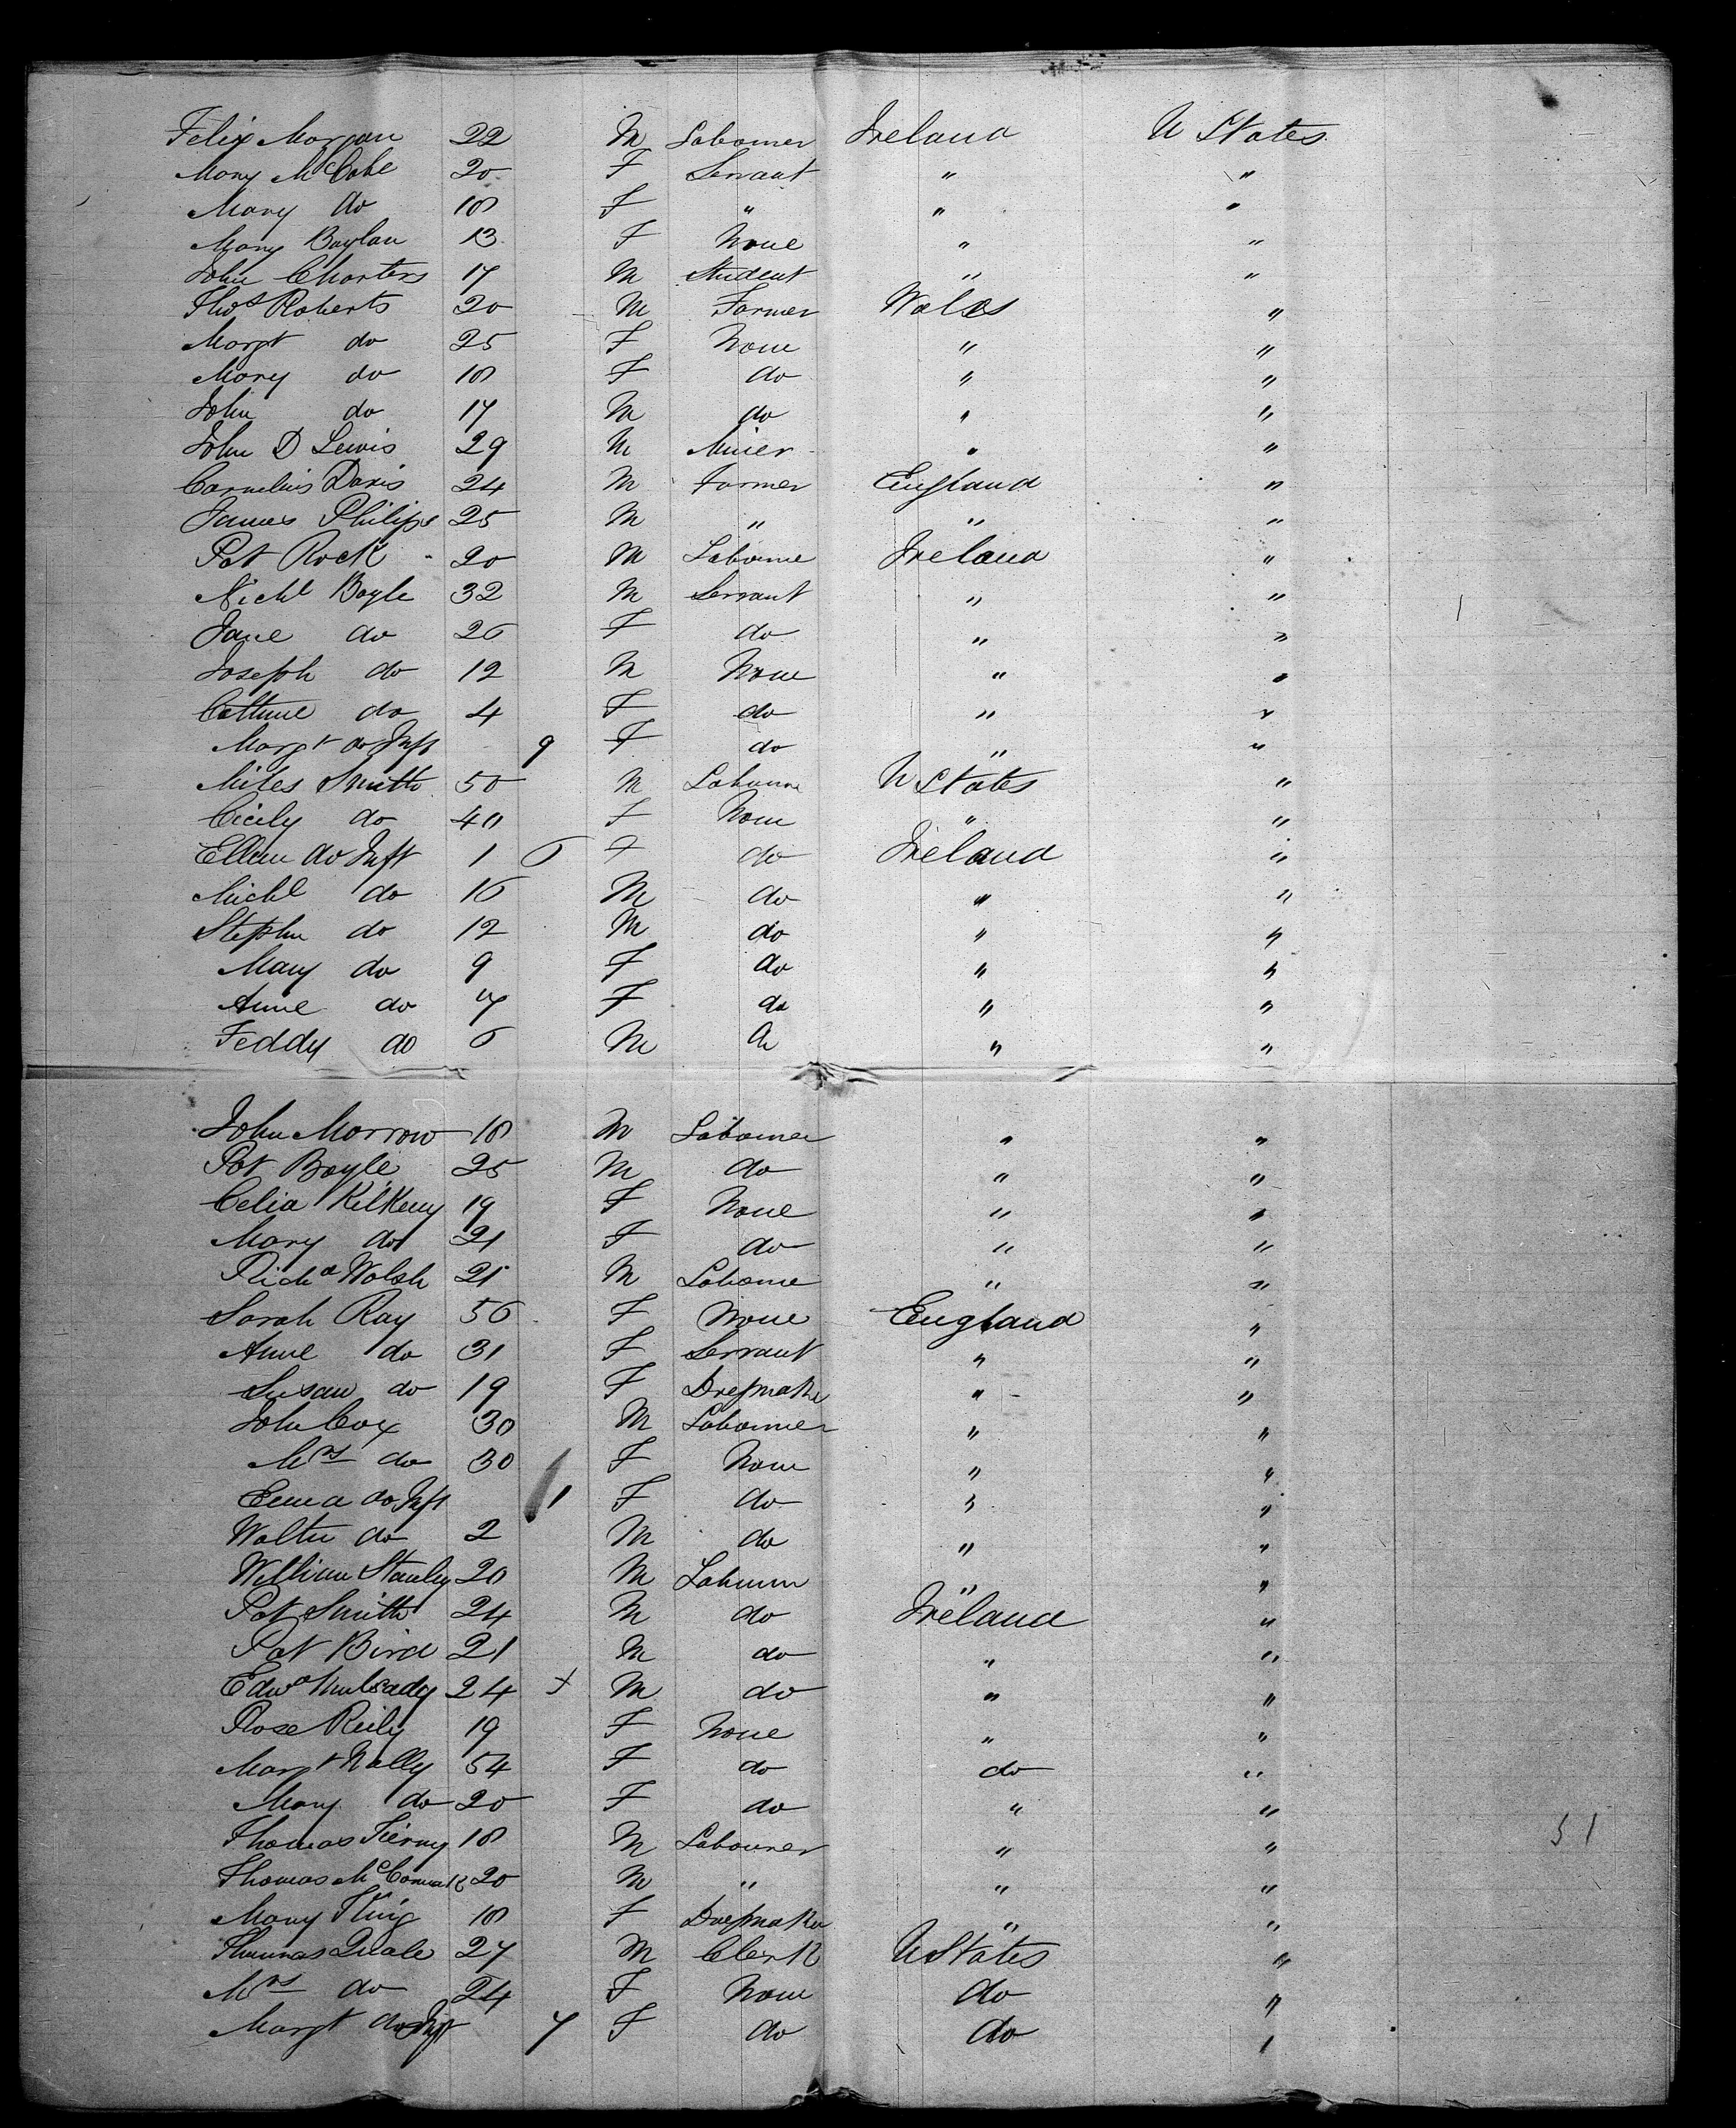 Felix Morgan 22 M Labourer Ireland U States
Mary McCabe 20 F Servant " "
Mary do 18 F " " "
Mary Boylan 13 F None " "
John Charters 17 M Student " "
Thos Roberts 20 M Farmer Wales "
Margt do 25 F None " "
Mary do 18 F do " "
John do 17 M do " "
John D Lewis 29 M Miner " "
Cornelius Davis 24 M Farmer England "
James Philips 25 M " " "
Pat Rock 20 M Laboure Ireland "
Michl Boyle 32 M Servant " "
Jane do 26 F do " "
Joseph do 12 M None " "
Cathine do 4 F do " "
Margt do Inft 9 F do " "
Miles Smith 50 M Laboure U States "
Cicily do 40 F None " "
Ellen do Inft 1 6 F do Ireland "
Michl do 16 M do " "
Stephn do 12 M do " "
Mary do 9 F do " "
Anne do 7 F do " "
Feddy do 6 M do " "
John Morrow 18 M Labourer " "
Pat Boyle 25 M do " "
Celia Kilkeny 19 F None " "
Mary do 21 F do " "
Richd Walsh 21 M Laboure " "
Sarah Ray 56 F None England "
Anne do 31 F Servant " "
Susan do 19 F Dressmake " "
John Cox 30 M Labourer " "
Mrs do 30 F None " "
Emma do Inft 11 F do " "
Walter do 2 M do " "
William Stanley 20 M Labourer " "
Pat Smith 24 M do Ireland "
Pat Bird 21 M do " "
Edwd 24 + M do " "
Rose Reily 19 F None " "
Margt Nally 54 F do do "
Mary do 20 F do " "
Thomas Tierny 18 M Labourer " "
Thomas McCormack 20 M " " "
Mary King 18 F Dressmaker " "
Thomas Quale 27 M Clerk U States "
Mrs do 24 F None do "
Margt do Inft 7 F do do "
51